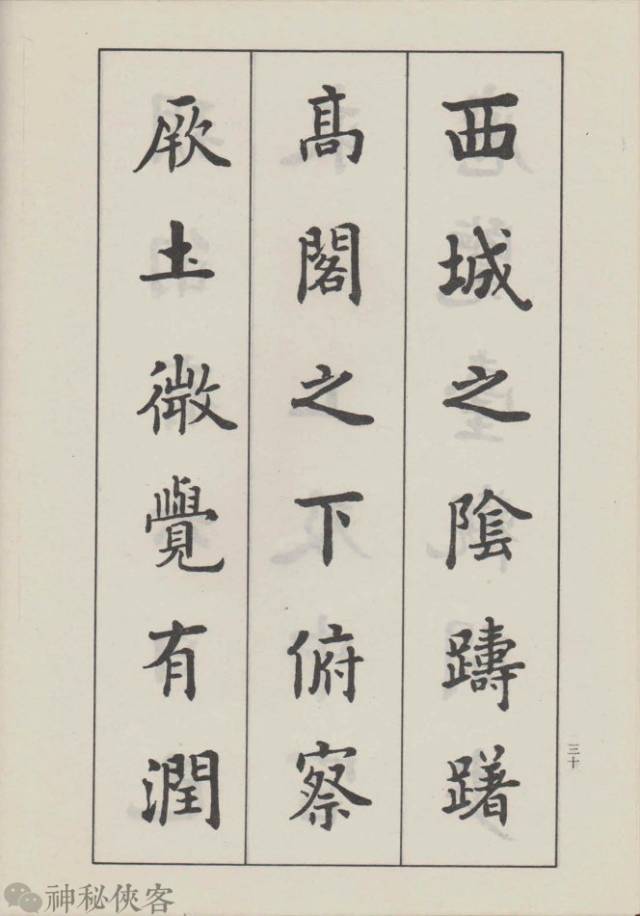 西城之陰躊躇
高閣之下俯察
厥土微覺有潤
三十
神秘俠客